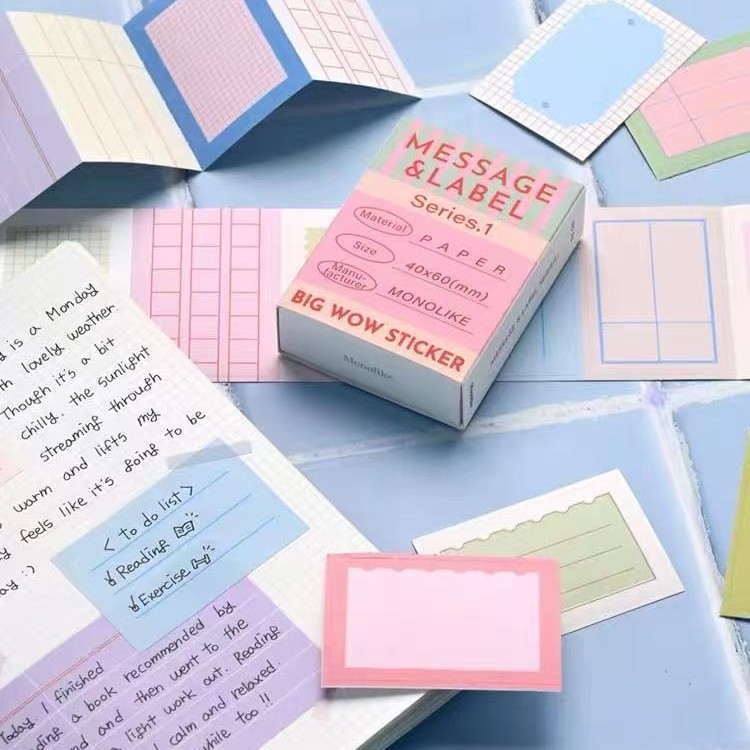 MESSAGE
&LABEL
Series.1
Material PAPER
Size 40x60(mm)
Manu-
facturer MONOLIKE
BIG WOW STICKER
Monolike
is a Monday
lovely weather.
Though it's a bit
chilly. the sunlight
streaming through
warm and lifts my
feels like it's going to be
:)
< to do list >
Reading
Exercise
Today. I finished
a book recommended by
and then went to the
light work out. Reading
calm and relaxed.
while too !!